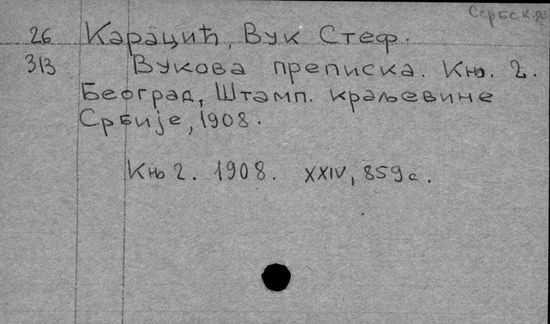 Сербск. яз
26 Караџић, Вук Стеф.
313 Вукова преписка. Књ. 2.
Београд, Штамп. краљевине
Србије, 1908.
Књ 2. 1908. XXIV, 859 с.